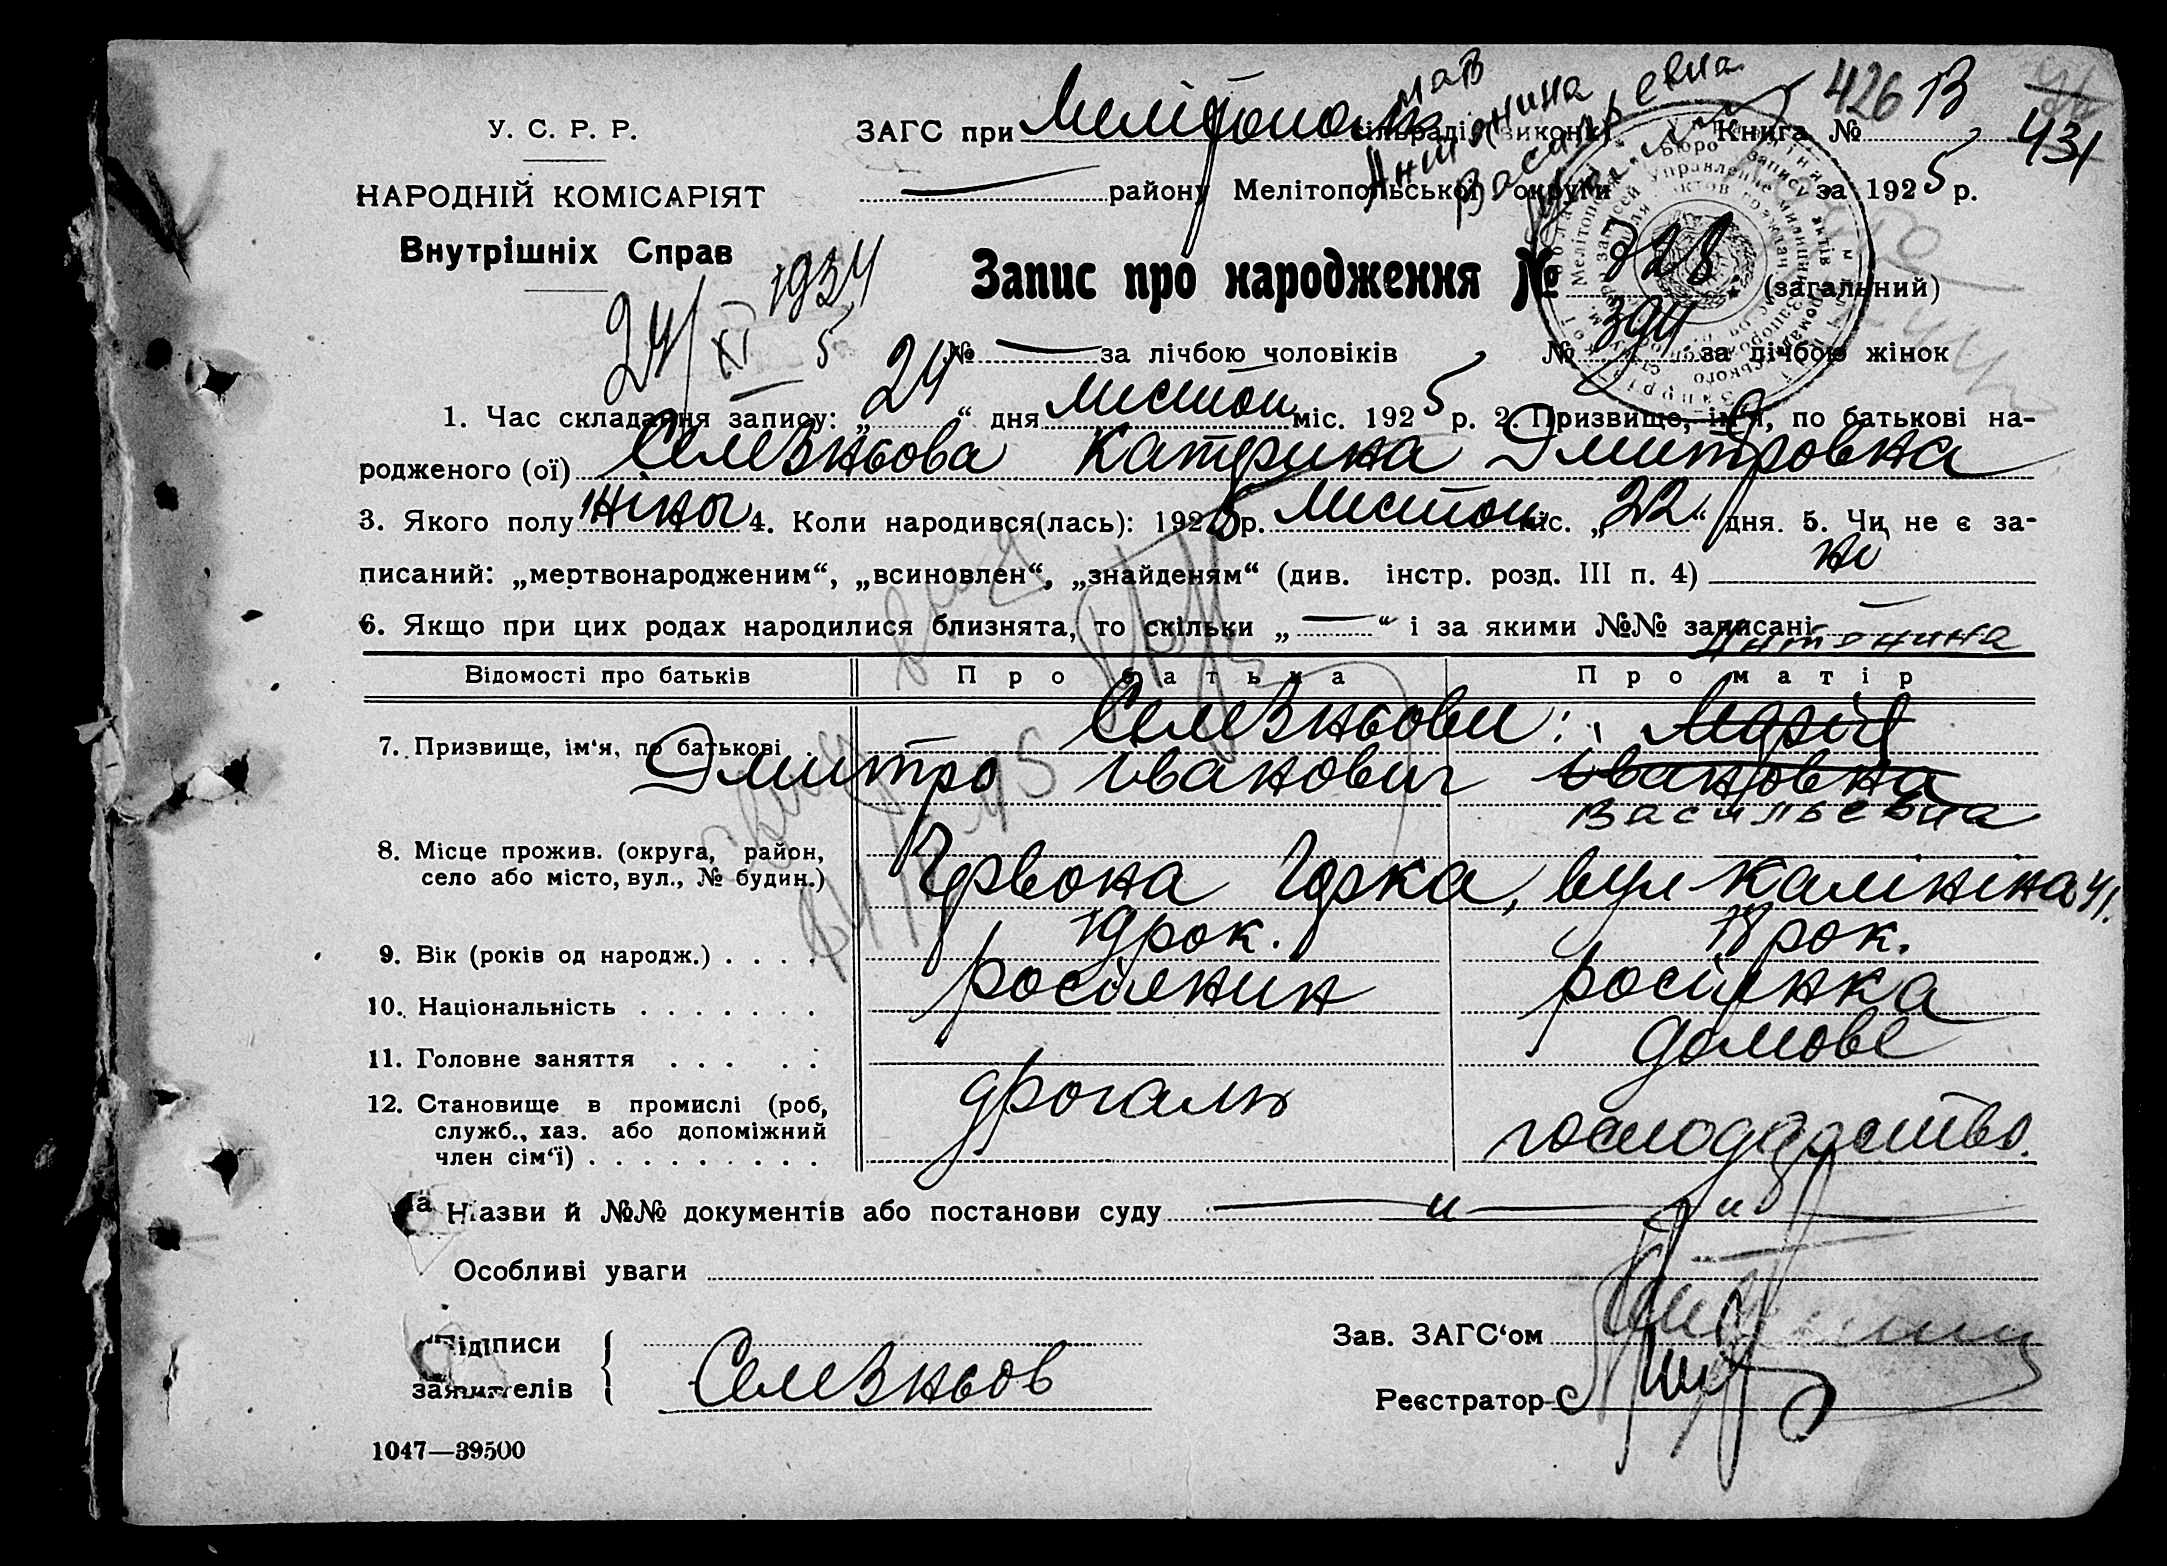 426 В
431
мать
Антонина
Васильевна
У. С. Р. Р.
ЗАГС при Мелітополь сільраді (виконк) Книга №
НАРОДНІЙ КОМІСАРІЯТ
району Мелітопольської округи за 1925 р.
Внутрішніх Справ
24/XI 1934
5
Запис про народження № 728 (загальний)
№ — за лічбою чоловіків № 394 за лічбою жінок
1. Час складання запису: „24“ дня листоп міс. 1925 р. 2. Призвище, ім'я, по батькові на-
родженого (ої) Селезньова Катрина Дмитровна
3. Якого полу жіноч 4. Коли народився(лась): 1925 р. листоп міс. „22“ дня. 5. Чи не є за-
писаний: „мертвонародженим“, „всиновлен“, „знайденям“ (див. інстр. розд. III п. 4) ні
6. Якщо при цих родах народилися близнята, то скільки „—“ і за якими №№ записані —
Антонина
Відомості про батьків Про батька Про матір
7. Призвище, ім'я, по батькові . Селезньови: Марія
Дмитро Іванович Івановна
Васильевна
8. Місце прожив. (округа, район,
село або місто, вул., № будин.) Червона Горка, вул Калініна 41.
9. Вік (років од народж.) . . . . 19 рок. 18 рок.
10. Національність . . . . . . . росіянин росіянка
11. Головне заняття . . . . . дрогаль домове
12. Становище в промислі (роб,
служб., хаз. або допоміжний
член сім'ї) . . . . . . . . . господарство.
Назви й №№ документів або постанови суду — „ — „ —
Особливі уваги
Підписи
заявителів { Селезньов
Зав. ЗАГС'ом
Реєстратор
1047—39500